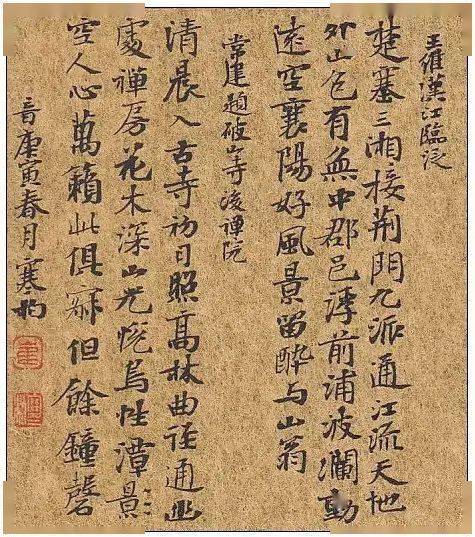 王維漢江臨泛
楚塞三湘接荆門九派通江流天地
外山色有無中郡邑浮前浦波瀾動
遠空襄陽好風景留醉与山翁
常建題破山寺後禅院
清晨入古寺初日照髙林曲径通幽
處禅房花木深山光悦鳥性潭影
空人心萬籟此俱寂但餘鐘磬
音庚寅春月寒